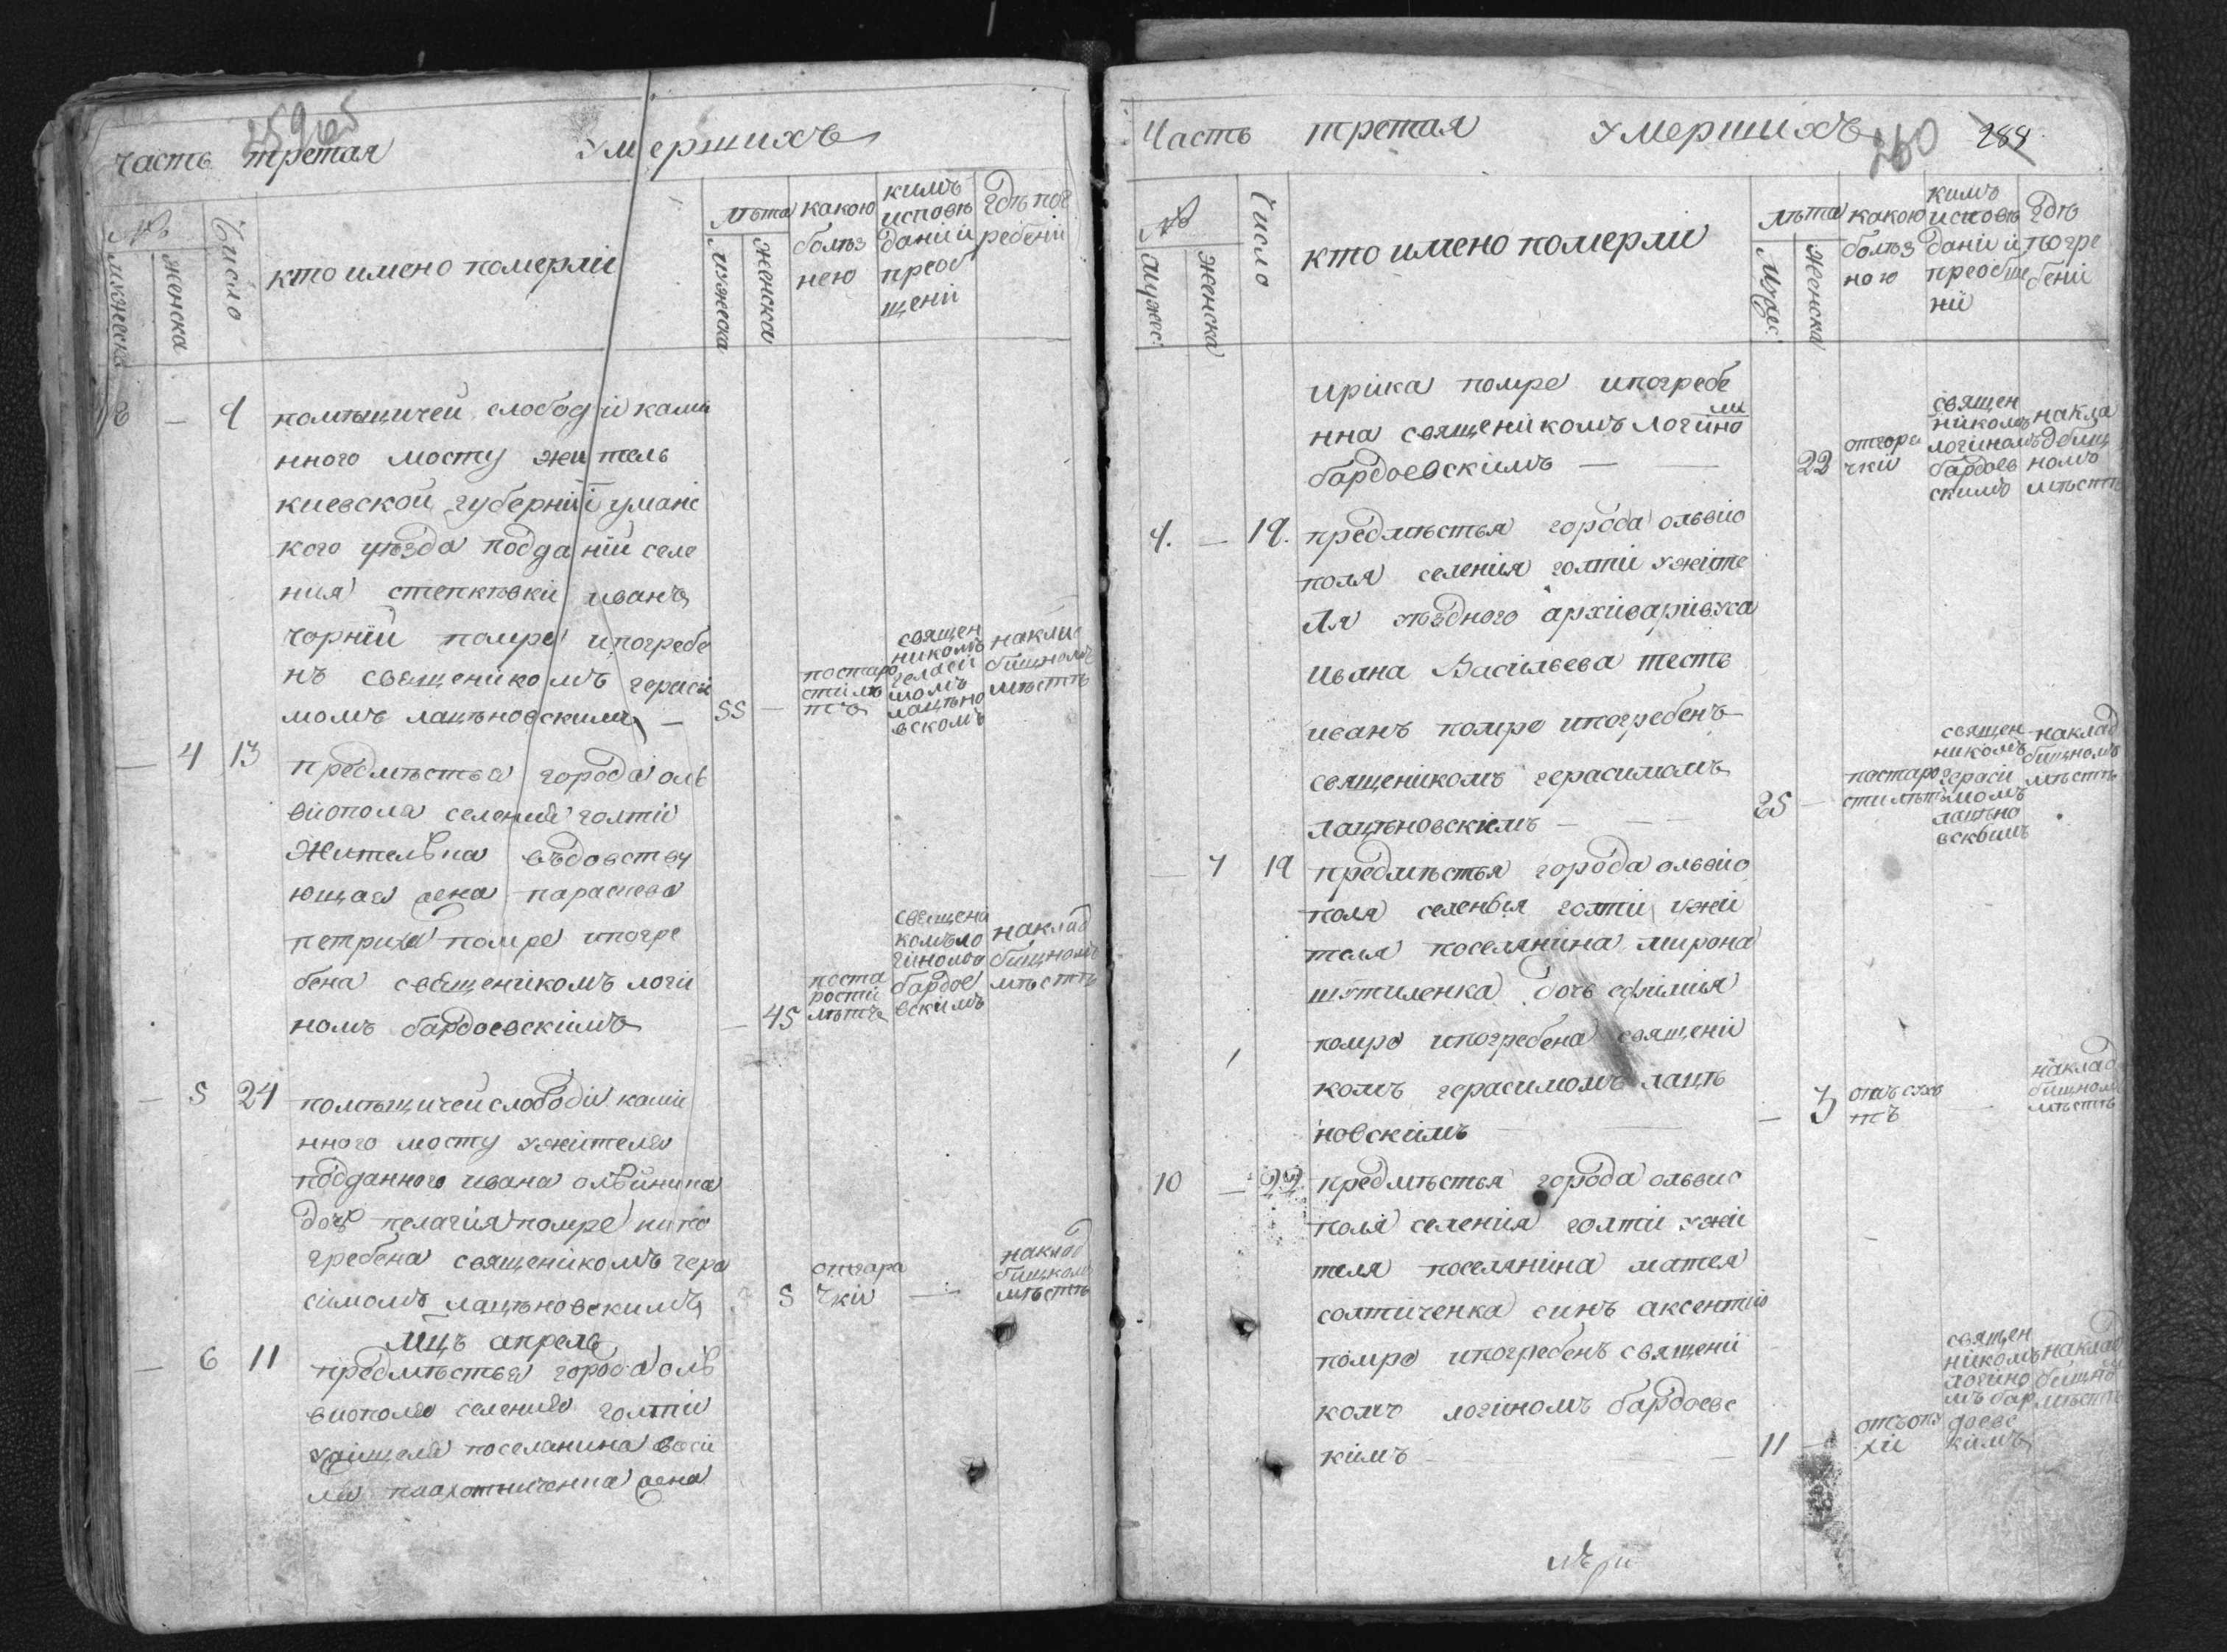 259
часть третая умершихъ
№
мужеска
женска
Число
кто имено померлій
лѣта
мужеска
женска
какою
болѣз
нею
кимъ
исповѣ
даній и
преоб
щеній
гдѣ пог
ребеній
8 — 4 помѣщичей слободій камѣ
нного мосту житель
киевской губерній уманс
кого уѣзда подданій селе
ния степковкій иванъ
чорній помре ипогребе
нъ священікомъ герасі
момъ лацѣновскимъ — 55 —
постаро
сти лѣ
тъ
священ
никомъ
герасі
момъ
лацѣно
вскомъ
накла
бищномъ
мѣстѣ
— 4 13 предмѣстья города оль
виополя селенія голтій
Жителька вѣдовству
ющая жена параскева
петриха помре ипогре
бена священікомъ логи
номъ бардоевскімъ — 45
поста
рости
лѣтъ
священі
комъ ло
гіномъ
бардое
вскимъ
наклад
бищномъ
мѣстѣ
— 5 24 помѣщичей слободій камѣ
нного мосту ужітеля
подданного ивана
дочь пелагия помре ипо
гребена священікомъ гера
сімомъ лацѣновскимъ 5
отгаря
чкій
наклад
бищномъ
мѣстѣ
Мцъ апрель
— 6 11 предмѣстья города оль
виополя селения голтій
ужителя поселянина васи
ля жена
Часть третая умершихъ 260 288
№
мужес:
женска
Число
кто имено померлій
лѣта
Мужес:
женска
какою
болѣз
ною
кимъ
исповѣ
даній и
преобще
ній
гдѣ
погре
беній
ирінка помре ипогребе
нна священікомъ логіно
мъ
бардоевскімъ — — 22
отгоря
чкій
священ
нікомъ
логіномъ
бардоев
скимъ
накла
дбищ
номъ
мѣстѣ
9. — 19. предмѣстья города ольвіо
поля селения голтій ужіте
ля уѣздного архиваріюса
ивана Васильева тесть
иванъ помре ипогребенъ
священікомъ герасимомъ
лацѣновскімъ — — 85 —
постаро
сти лѣтъ
священ
никомъ
герасі
момъ
лацѣно
вскимъ
наклад
бищномъ
мѣстѣ
— 7 19 предмѣстья города ольвіо
поля селенія голтій ужі
теля поселянина мирона
шутиленка дочь ефимия
помре ипогребена священі
комъ герасимомъ лацѣ
новскімъ — — 3
отъ
тъ
—
наклад
бищномъ
мѣстѣ
10 — 22 предмѣстья города ольвио
поля селения голтій ужі
теля поселянина матея
солтиченка синъ аксентій
помре ипогребенъ священі
комъ логіномъ бардоевс
кімъ — — 11 —
отъопу
хи
священ
нікомъ
логіно
мъ бар
доевс
кимъ
наклад
бищно
мѣстѣ